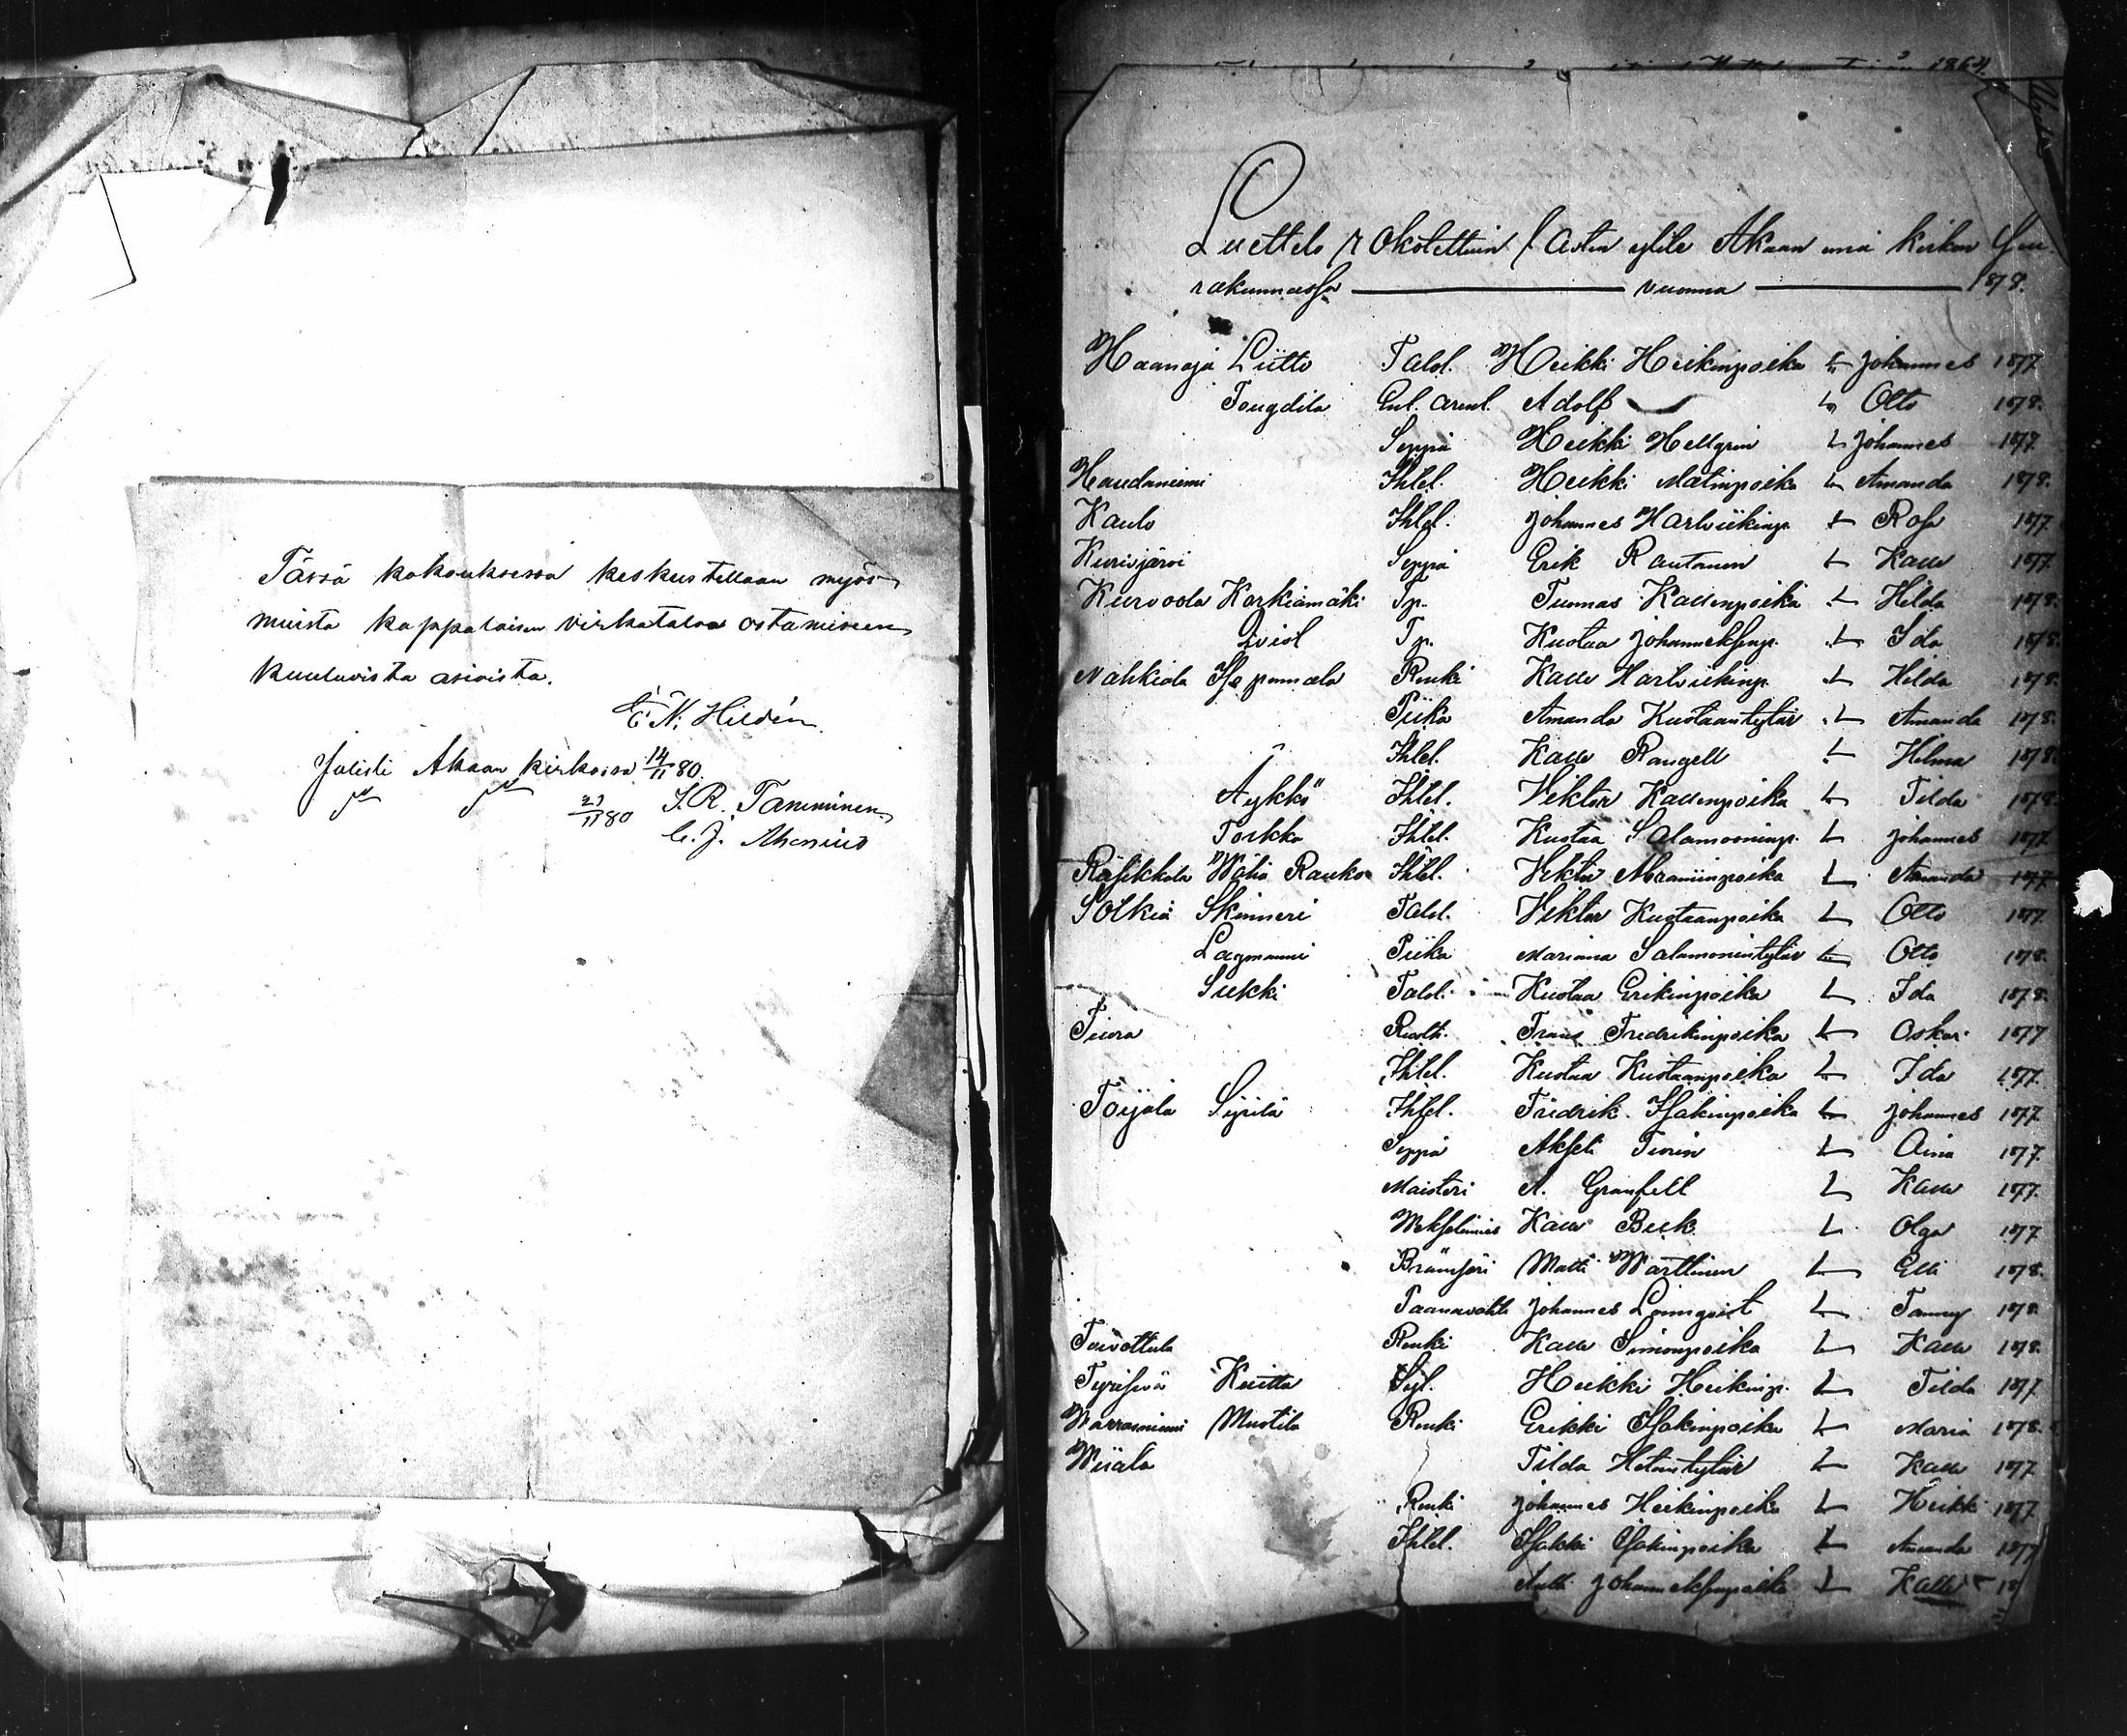 Tässä kokouksessa keskustellaan myös
muista kappalaisen virkatalon ostamiseen
kuuluvista asioista.
E. N. Hildén.
Julisti Akaan kirkossa 14/11 80.
21/11 80 J. R. Tamminen
C. J. Ahenius
1864.
Luettelo rokotettuin lasten ylite Akaan emä kirkon Seu-
rakunnassa vuonna 1878.
Haanoja Liitto Talol. Heikki Heikinpoika L. Johannes 1877
Adolf L. Otto 1878.
Seppä Heikki Hellgrin L. Johannes 1877
Haudaniemi Ihlel. Heikki Matinpoika L. Amanda 1878.
Kaulo Ihlel. Johannes Hartviikinp. L. Rosa 1877
Kurisjärvi Seppä Erik Rautanen L. Kalle 1877.
Kurvoola Korkiamäki Tp. Tuomas Kallenpoika L. Hilda 1878.
Tp. Kustaa Johanneksenp. L. Ida 1878.
Nahkiala Renki Kalle Hartviikinp. L. Hilda 1878.
Piika Amanda Kustaantytär L. Amanda 1878.
Ihlel. Kalle Rangell L. Hilma 1878.
Äykkö Ihlel. Viktor Kallenpoika L. Tilda 1878.
Torkko Ihlel. Kustaa Salamooninp. L. Johannes 1877.
Räsikkala Wähä Rauko Ihlel. Viktor Abraminpoika L. Amanda 1877
Sotkia Skinneri Talol. Viktor Kustaanpoika L. Otto 1877.
Lagmanni Piika Mariana Salamonintytär L. Otto 1878.
Sukki Talol. Kustaa Erikinpoika L. Ida 1878.
Frans Fredrikinpoika L. Oskar 1877
Ihlel. Kustaa Kustaanpoika L. Ida 1877.
Toijala Syrilä Ihlel. Fredrik Isakinpoika L. Johannes 1877.
Seppä Akseli L. Aina 1877.
Maisteri A. Granfelt L. Kalle 1877.
Kalle Beck L. Olga 1877
Matti Warttinen L. Elli 1878.
Johannes Lönnqvist L. Fanny 1878.
Toivottula Renki Kalle Simonpoika L. Kalle 1878.
Kuitta Heikki Heikinp. L. Tilda 1877.
Warrasniemi Mustila Renki Erikki Isakinpoika L. Maria 1878.
Wiiala Tilda L. Kalle 1877
Renki Johannes Heikinpoika L. Heikki 1877
Ihlel. Isakki Isakinpoika L. Amanda 1877
Antti Johanneksenpoika L. Kalle 18